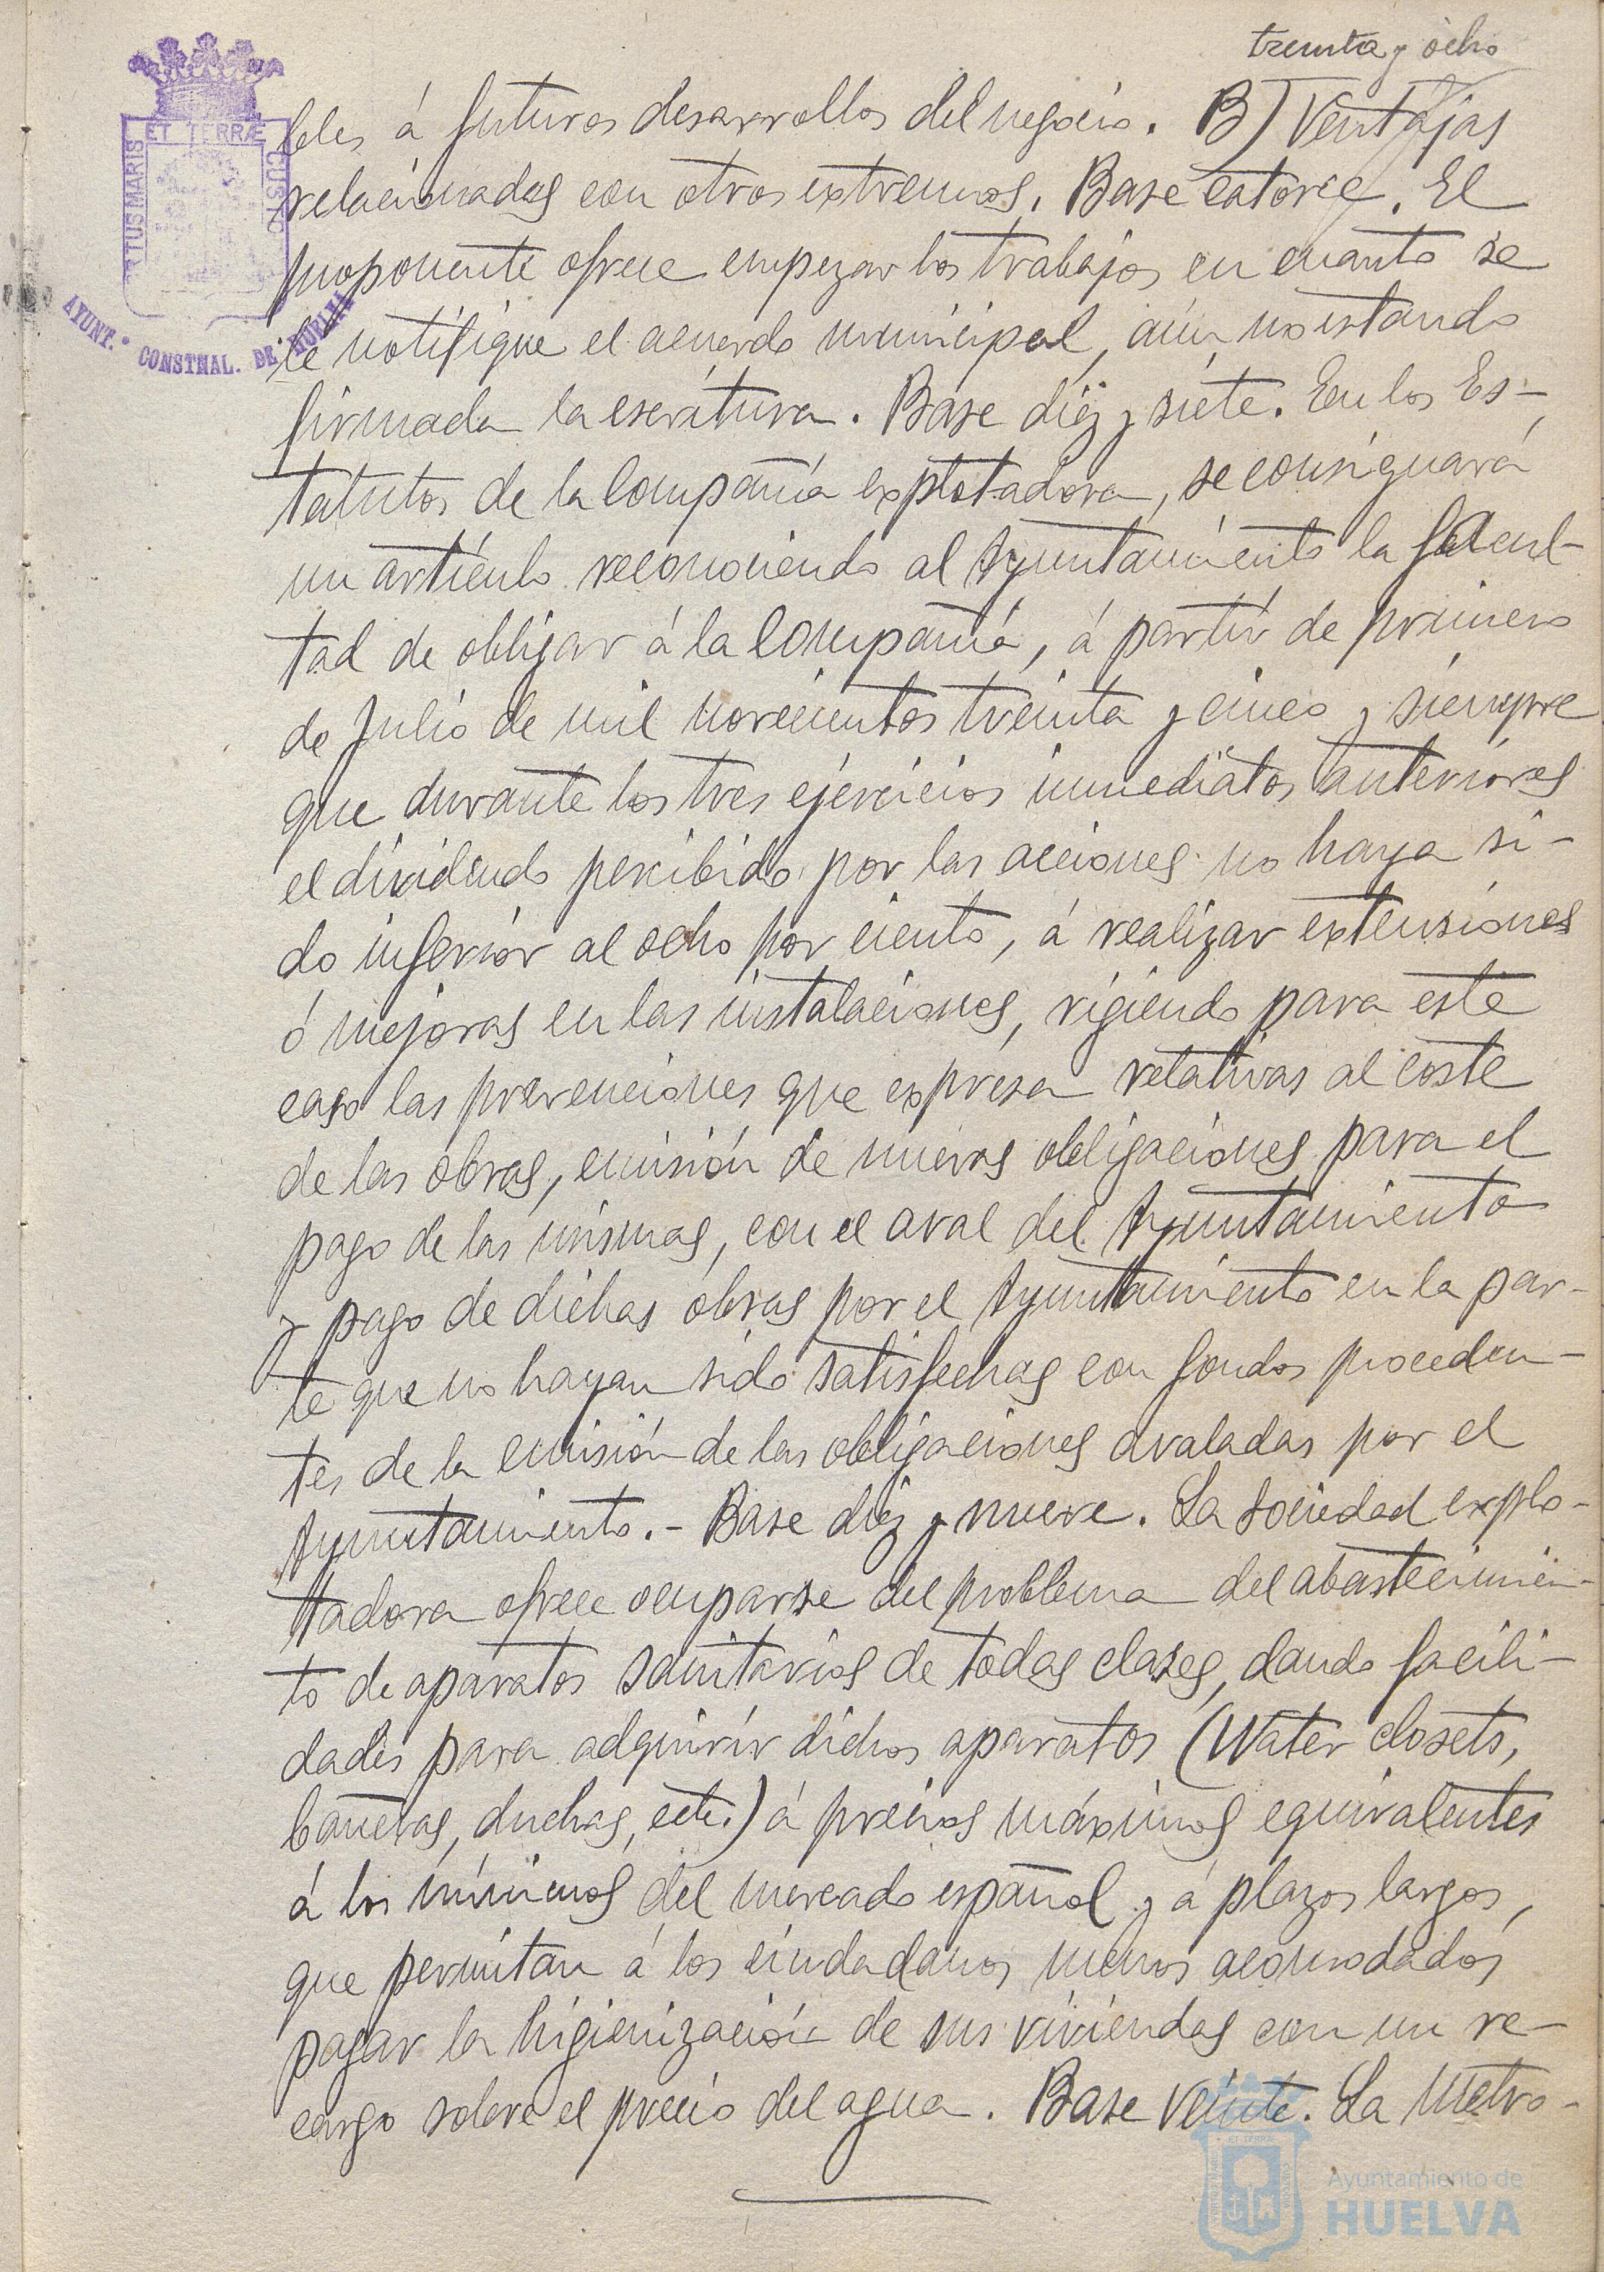 treinta y ocho
bles á futuros desarrollos del negocio. B) Ventajas
relacionadas con otros extremos. Base catorce. El
proponente ofrece empezar los trabajos en cuanto se
le notifique el acuerdo municipal, aún no estando
firmada la escritura. Base diez y siete. En los Es-
tatutos de la Compañía explotadora, se consignará
un artículo reconociendo al Ayuntamiento la facul-
tad de obligar á la Compañía, á partir de primero
de Julio de mil novecientos treinta y cinco y siempre
que durante los tres ejercicios inmediatos anteriores
el dividendo percibido por las acciones no haya si-
do inferior al ocho por ciento, á realizar extensiones
ó mejoras en las instalaciones, rigiendo para este
caso las prevenciones que expresa relativas al coste
de las obras, emisión de nuevas obligaciones para el
pago de las mismas, con el aval del Ayuntamiento
y pago de dichas obras por el Ayuntamiento en la par-
te que no hayan sido satisfechas con fondos proceden-
tes de la emisión de las obligaciones avaladas por el
Ayuntamiento.- Base diez y nueve. La Sociedad explo-
tadora ofrece ocuparse del problema del abastecimien-
to de aparatos sanitarios de todas clases, dando facili-
dades para adquirir dichos aparatos (Water closets,
bañeras, duchas, ectc.) á precios máximos equivalentes
á los mínimos del mercado español y á plazos largos,
que permitan á los ciudadanos menos acomodados
pagar la higienización de sus viviendas con un re-
cargo sobre el precio del agua. Base veinte. La Metro-
ET TERRÆ
CUSTO
TUS MARIS
AYUNT. CONSTNAL. DE HUELVA
Ayuntamiento de
HUELVA